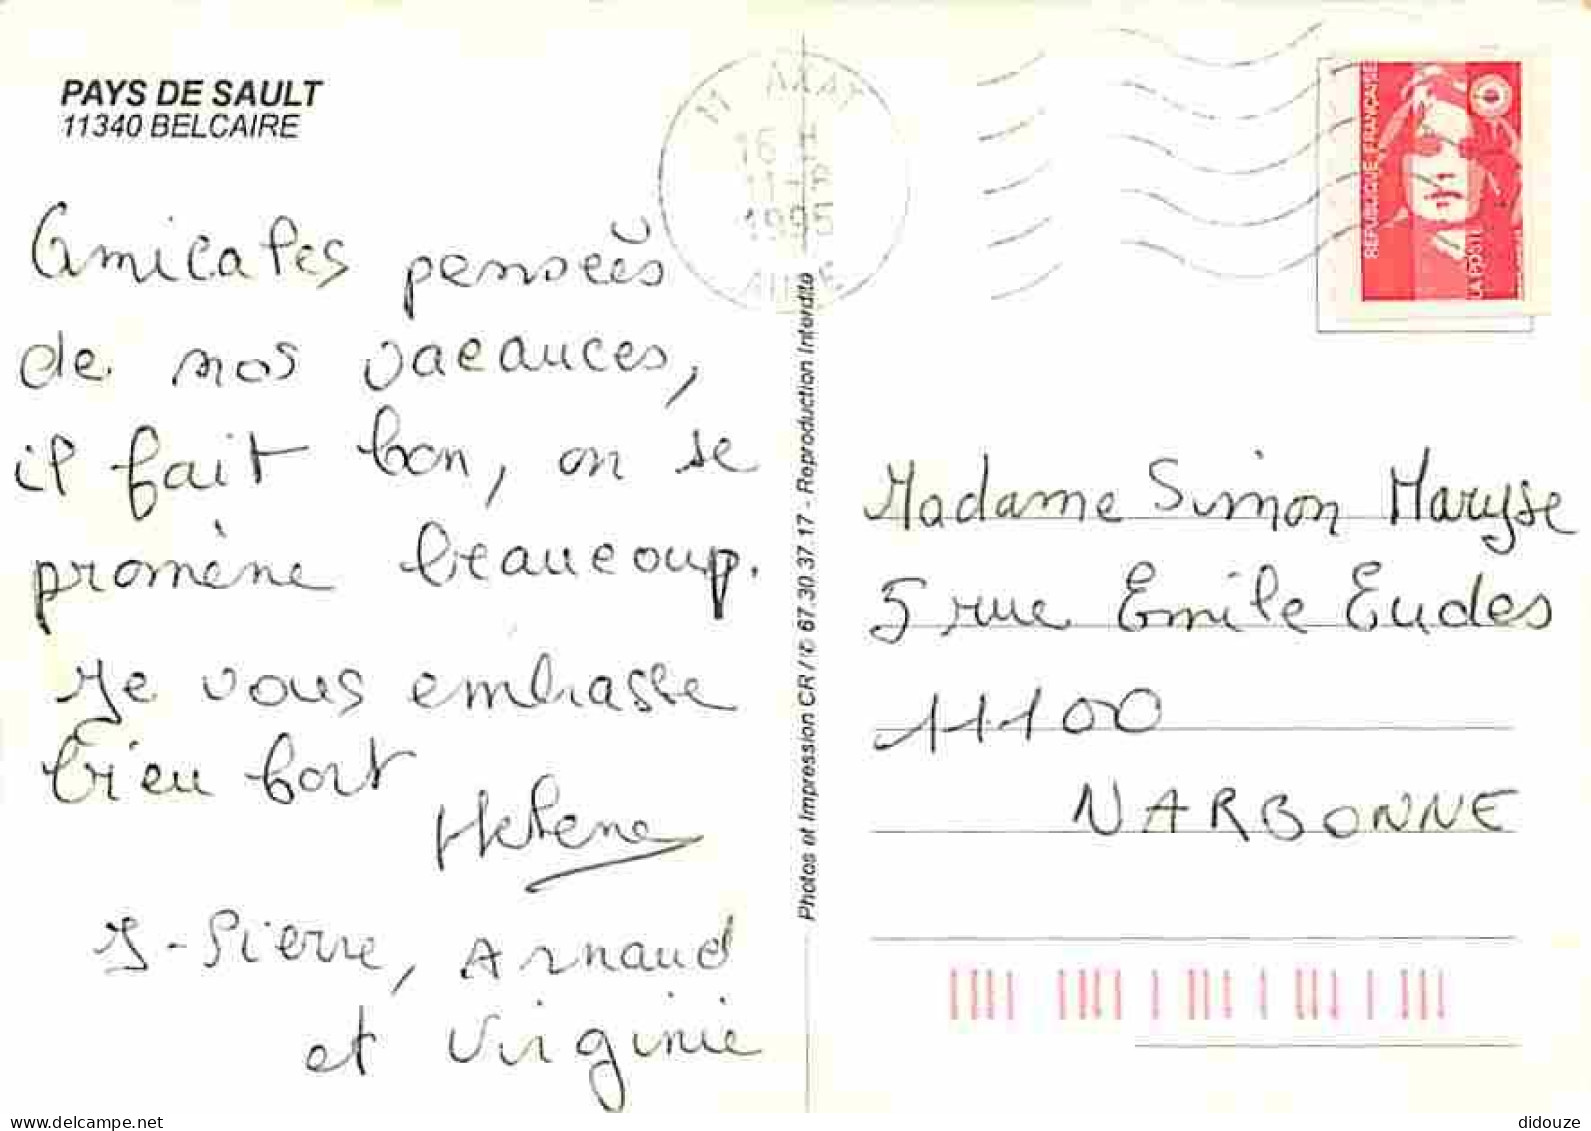 PAYS DE SAULT
11340 BELCAIRE
Amicales pensées
de nos vacances,
il fait bon, on se
promène beaucoup.
Je vous embrasse
bien fort
Helene
J-Pierre, Arnaud
et Virginie
Photos et Impression CR / © 67.30.37.17 - Reproduction Interdite
AUDE
REPUBLIQUE FRANÇAISE
LA POSTE
Madame Simon Maryse
5 rue Emile Eudes
11100
NARBONNE
delcampe.net
didouze